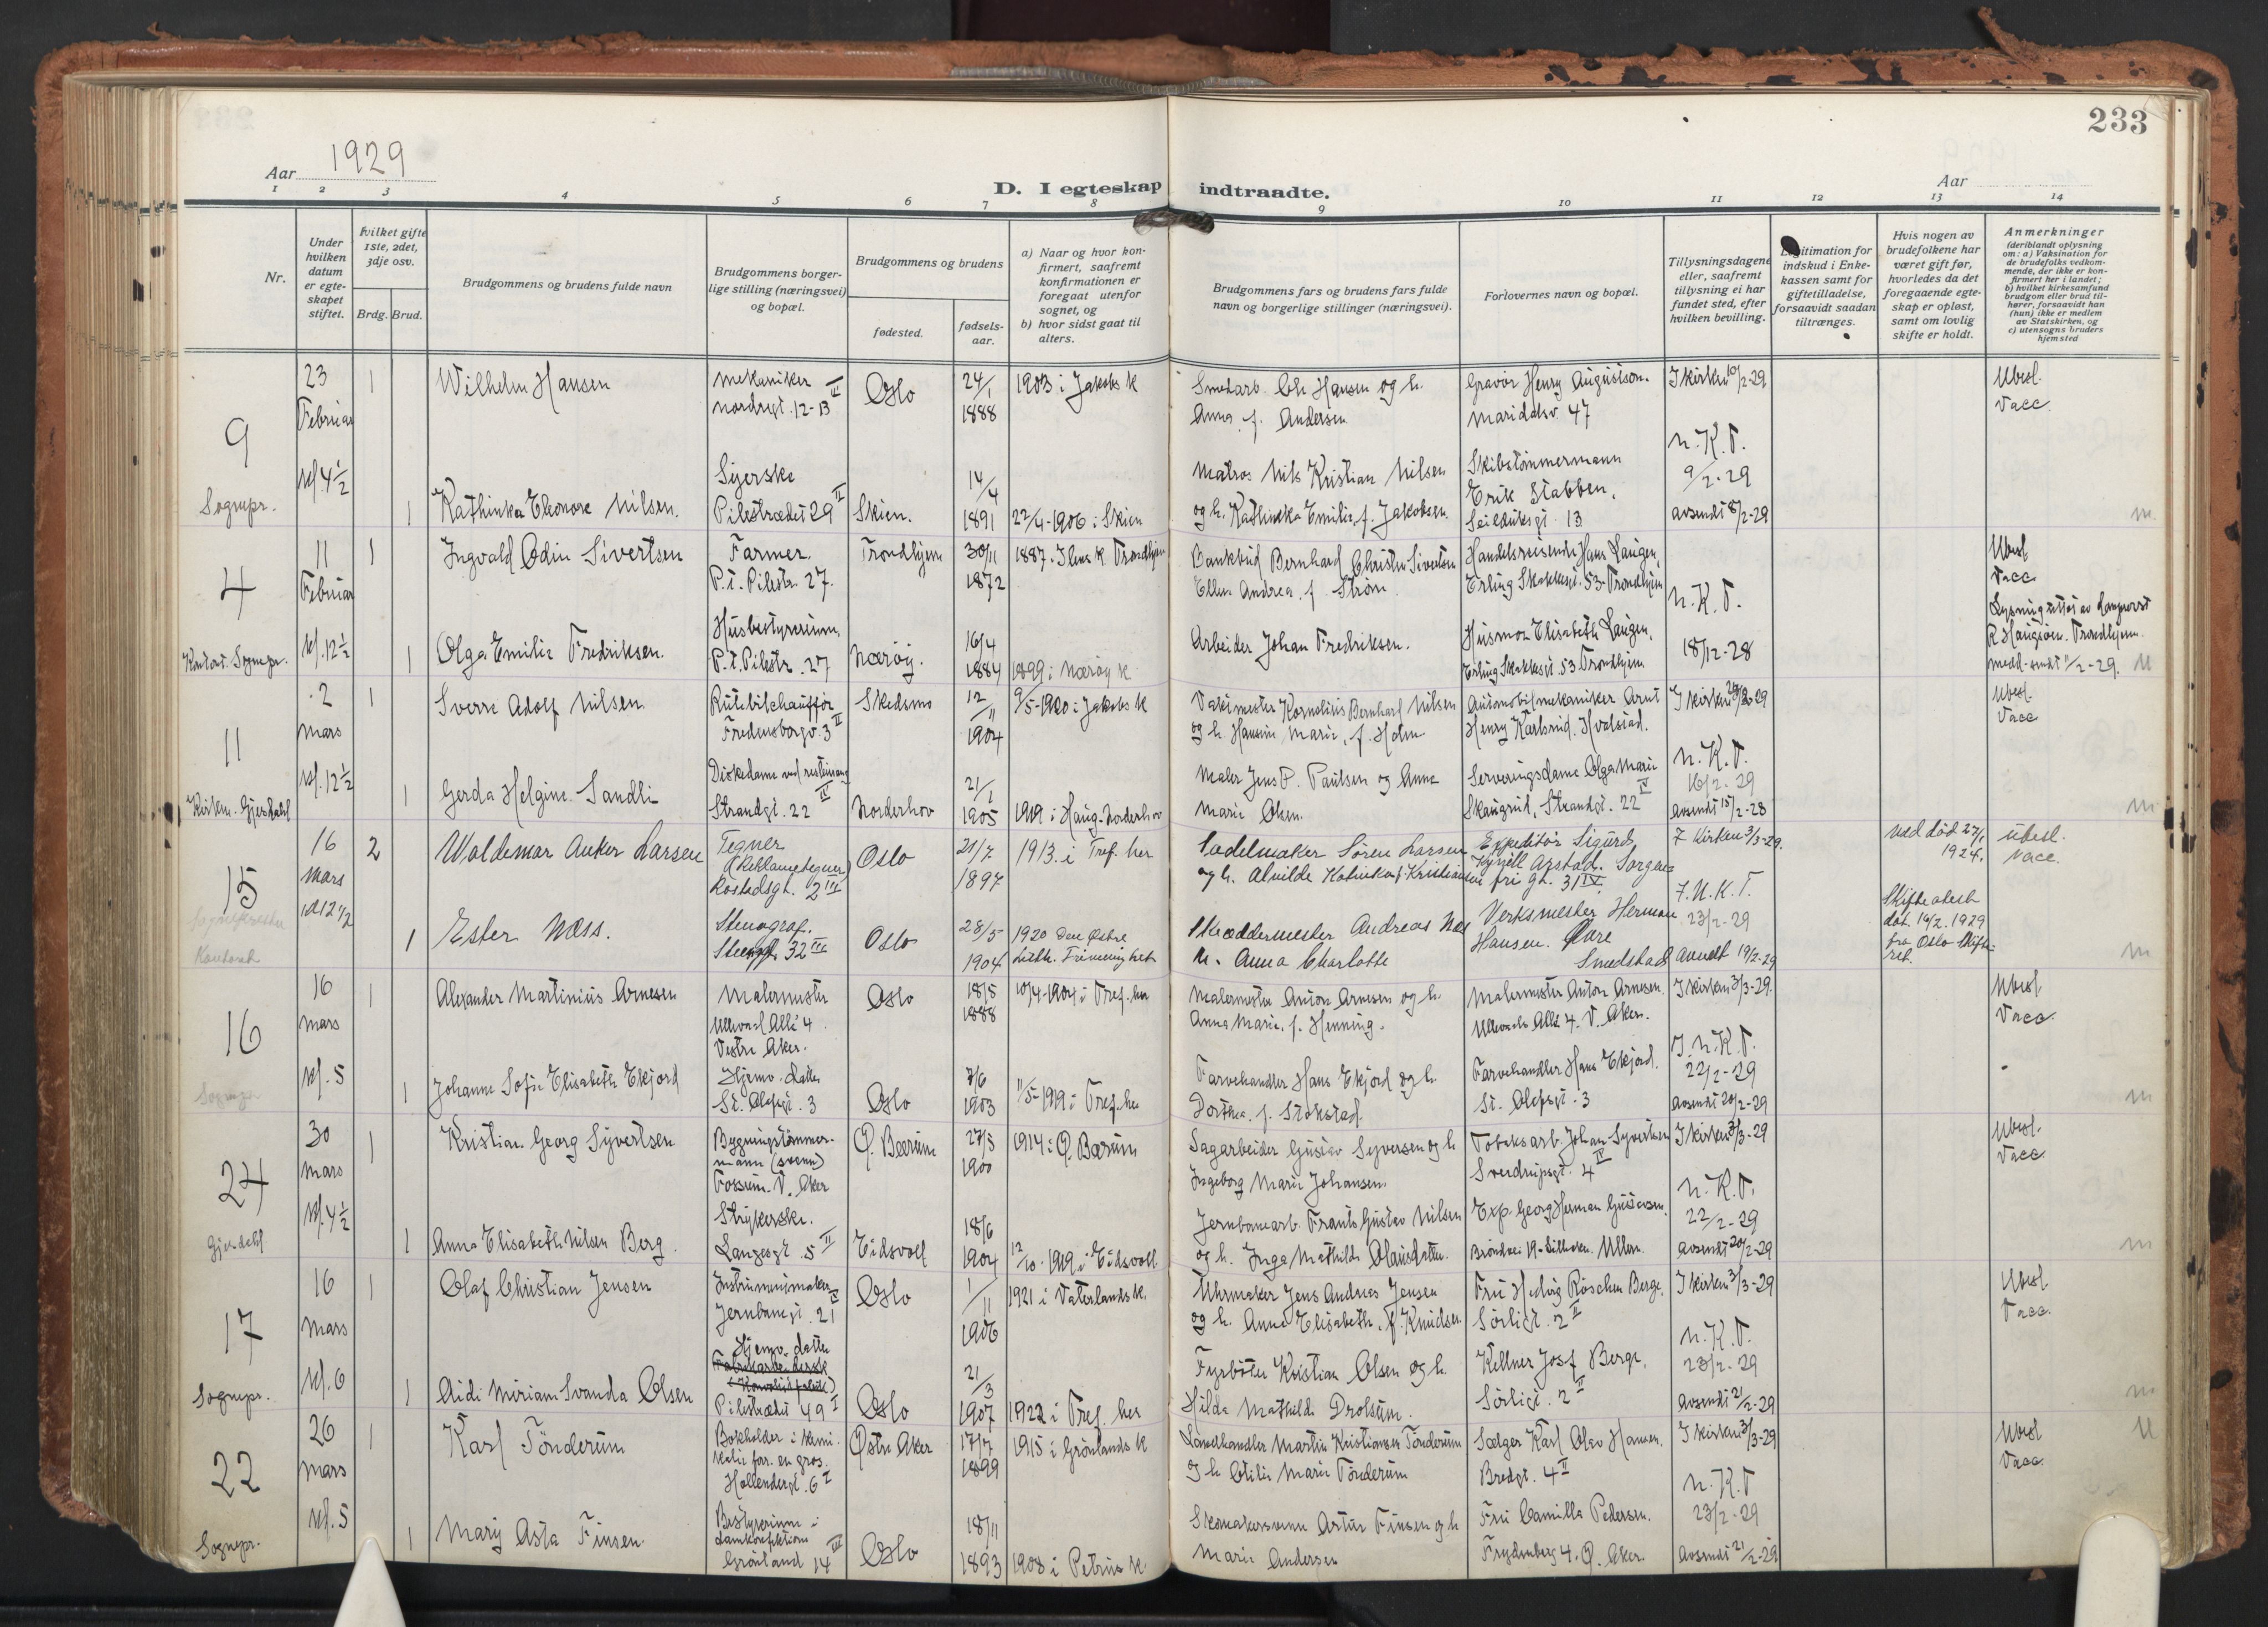 233
1929
Aar
Aar
D. I egteskap indtraadte.
1 2 3 4 5 6 7 8 9 10 11 12 13 14
Nr.
Under
hvilken
datum
er egte-
skapet
stiftet.
hvilket gifte
1ste, 2det,
3dje osv.
Brdg. Brud.
Brudgommens og brudens fulde navn
Brudgommens borger-
lige stilling (næringsvei)
og bopæl.
Brudgommens og brudens
fødested.
fødsels-
aar.
a) Naar og hvor kon-
firmert, saafremt
konfirmationen er
foregaat utenfor
sognet, og
b) hvor sidst gaat til
alters.
Brudgommens fars og brudens fars fulde
navn og borgerlige stillinger (næringsvei).
Forlovernes navn og bopæl.
Tillysningsdagene
eller, saafremt
tillysning ei har
fundet sted, efter
hvilken bevilling.
Legitimation for
indskud i Enke-
kassen samt for
giftetilladelse,
forsaavidt saadan
tiltrænges.
Hvis nogen av
brudefolkene har
været gift før,
hvorledes da det
foregaaende egte-
skap er opløst,
samt om lovlig
skifte er holdt.
Anmerkninger
(deriblandt oplysning
om: a) Vaksination for
de brudefolks vedkom-
mende, der ikke er kon-
firmert her i landet;
b) hvilket kirkesamfund
brudgom eller brud til-
hører, forsaavidt han
(hun) ikke er medlem
av Statskirken, og
c) utensogns bruders
hjemsted
9
Sognepr.
23
Februar
kl 4 1/2
1
Wilhelm Hansen
mekaniker
nordregt. 12-13 III
Oslo
24/1
1888
1903 i Jakobs k
Smedarb. Chr Hansen og h.
Anna f. Andersen
Gravör Henry Augustson.
Maridalsv. 47
I kirken 10/2-29
Ubesl.
Vacc.
1
Kathinka Eleonore Nilsen.
Syerske
Pilestrædet 29 II
Skien.
14/4
1891
22/4-1906 i Skien
Matros Nils Kristian Nilsen
og h. Kathinka Emilie, f. Jakobsen
Skibstömmermann
Erik Stabben,
Seilduksgt 13
n.K.T.
9/2-29
avsendt 8/2-29
m
4
Kontoret Sognepr.
11
Februar
kl. 12 1/2
1
Ingvald Odin Sivertsen
Farmer.
P.t. Pilestr. 27.
Trondhjem
30/11
1872
1887 i Ilens k Trondhjem
Bankbud Bernhard Christian Sivertsen
Ellen Andrea, f. Ström
Handelsreisende Hans Laugen,
Erling Skakkesgt. 53-Trondhjem
n.K.T.
18/12-28
Ubesl
Vacc
1
Olga Emilie Fredriksen.
Husbestyrerinne,
P.t. Pilestr. 27
Nærøy.
16/4
1884
1899 i Nærøy k
Arbeider Johan Fredriksen.
Husmor Elisabeth Laugen,
Erling Skakkesgt. 53 Trondhjem
Trondhjem.
medd-sendt 11/2-29. M
11
Kirken. Gjerdahl
2
mars
kl. 12 1/2
1
Sverre Adolf Nilsen
Rutebilchauffør
Fredensborgv. 3 II
Skedsmo
12/11
1904
9/5-1920 i Jakobs k
Vaktmester Kornelius Bernhard Nilsen
og h. Hansine Marie, f. Holm
Automobilmekaniker Arnt
Henry Karlsrud. Hvalstad.
Ubesl.
Vacc
1
Gerda Helgine Sandli
Strandgt. 22 IV
Norderhov
21/1
1905
1919 i Haug-Norderhov
Maler Jens P. Paulsen og Anne
Marie Olsen.
Serveringsdame Olga Marie
Skaugrud, Strandgt. 22 IV
n.K.T.
16/2-29
avsendt 15/2-28
m
15
Kontoret
16
mars
kl 12 1/2
2
Waldemar Anker Larsen
Tegner
(Reklametegner)
Rostedsgt. 2 III
Oslo
21/7
1897
1913. i Tref. her
Sadelmaker Sören Larsen
og h. Alvilde Katinka f. Kristiansen
Expeditør Sigurd
Kyrjell Arstad. Sorgen-
fri gt. 31 IV.
I Kirken 3/3-29.
ved død 27/1
1924.
ubesl.
vacc.
1
Ester Næss.
Stenograf.
Stensgt. 32 III
Oslo
28/5
1904
1920 Den Østre
Luth. Frimenighet
Skreddermester Andreas Næs
h. Anna Charlotte
Verksmester Herman
Hansen. Øvre
Smedstad
f. N.K.T.
23/2-29
avsendt 19/2-29
Skifteattest
dat. 16/2. 1929
fra Oslo Skifte-
ret.
m
16
Sognepr
16
mars
kl. 5
1
Alexander Martinius Arnesen
Malermester
Ullevaal Allé 4.
Vestre Aker.
Oslo
18/8
1888
10/4-1904 i Tref. her
Malermester Anton Arnesen og h.
Anna Marie, f. Henning.
Malermester Anton Arnesen.
Ullevaals Allé 4. V. Aker.
I kirken 3/3-29.
Ubesl
Vacc.
1
Johanne Sofie Elisabeth Ekjord
Hjemv. datter
St. Olafsgt. 3
Oslo
7/6
1903
11/5-1919 i Tref. her
Farvehandler Hans Ekjord og h.
Dorthea, f. Stokstad
Farvehandler Hans Ekjord.
St. Olafsgt. 3
I. n.K.T.
22/2-29
avsendt 20/2-29
m
24
Gjerdahl
30
mars
kl. 4 1/2
1
Kristian Georg Syvertsen
Bygningstømmer-
mann (svenn)
Fossum. V. Aker
Ø. Bærum
27/3
1900
1914 i Ø. Bærum
Sagarbeider Gustav Syversen og h
Ingeborg Marie Johansen
Tobaksarb. Johan Syvertsen
Sverdrupsgt. 4 IV
I kirken 3/3-29
Ubesl.
Vacc
1
Anna Elisabeth Nilsen Berg.
Strykerske.
Langesgt. 5 II
Eidsvoll
18/6
1904
12/10-1919 i Eidsvoll
Jernbanearb. Frants Gustav Nilsen
og h. Inga Mathilde Olausdatter.
Exp. Georg Herman Gustavsen.
Ullern.
n.K.T.
22/2-29
avsendt 20/2-29
m
17
Sognepr.
16
mars
kl. 6
1
Olaf Christian Jensen
Instrumentmaker
Jernbanegt. 21 IV
Oslo
1/11
1906
1921 i Vaterlands k.
Uhrmaker Jens Andreas Jensen
og h. Anna Elisabeth, f. Knudsen
Fru Hedvig Röschen Berge.
Sørligt. 2 II
I kirken 3/3-29
Ubesl.
Vacc.
1
Aidi Miriam Svanda Olsen
Hjemv. datter
Pilestrædet 49 I
Oslo
21/3
1907
1922 i Tref. her
Fyrböter Kristian Olsen og h.
Hilda Mathilde Drolsum.
Kellner Josef Berge,
Sörligt. 2 II
n.K.T.
23/2-29
avsendt 21/2-29
m
22
Sognepr.
26
mars
kl. 5
1
Karl Tönderum
Bokholder i kemi-
kalie for. en gros.
Hollendergt. 6 I
Østre Aker
17/7
1899
1915 i Grönlands k
Landhandler Martin Kristiansen Tönderum
og h Otilie Marie Tönderum
Sælger Karl Olav Hansen,
Bredgt. 4 II
I kirken 3/3-29
Ubesl
Vacc.
M
1
Mary Asta Finsen.
Bestyrerinne i
damkonfektion
Grönland 14 III
Oslo
18/11
1893
1908 i Petrus k.
Skomakersvenn Artur Finsen og h
Marie Andersen
Fru Camilla Pedersen.
Frydenberg 4. Ø. Aker.
n.K.T
23/2-29
avsendt 21/2-29